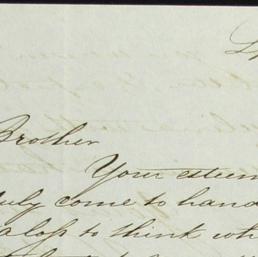 Brother
Your esteem
duly come to hand
a loss to think wh